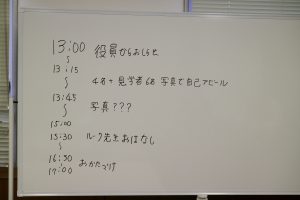 13:00 役員からおしらせ
〜
13:15
〜 4名+見学者6名 写真で自己アピール
13:45
〜 写真???
15:00
15:30 ルーク先生おはなし
〜
16:30 おかたづけ
17:00